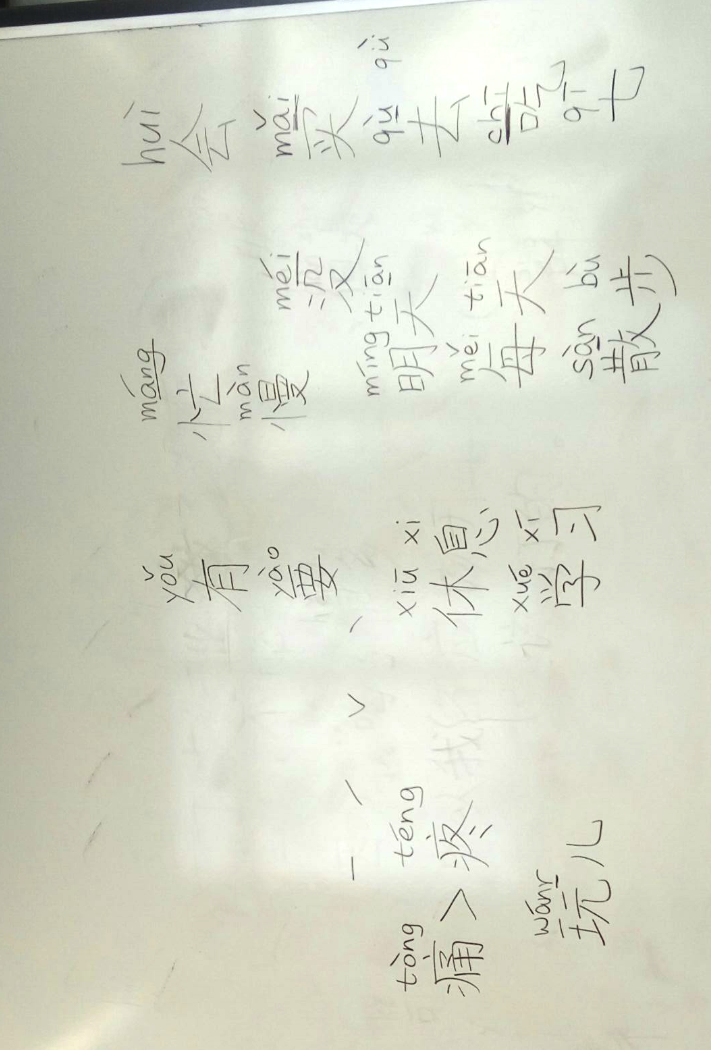 ˉ ˊ ˇ ˋ
tòng téng
痛 > 疼
wánr
玩儿
yǒu
有
yào
要
xiū xi
休息
xué xī
学习
máng
忙
màn
慢
méi
没
míng tiān
明天
měi tiān
每天
sàn bù
散步
huì
会
mǎi
买
qù qù
去
chī
吃
qī
七